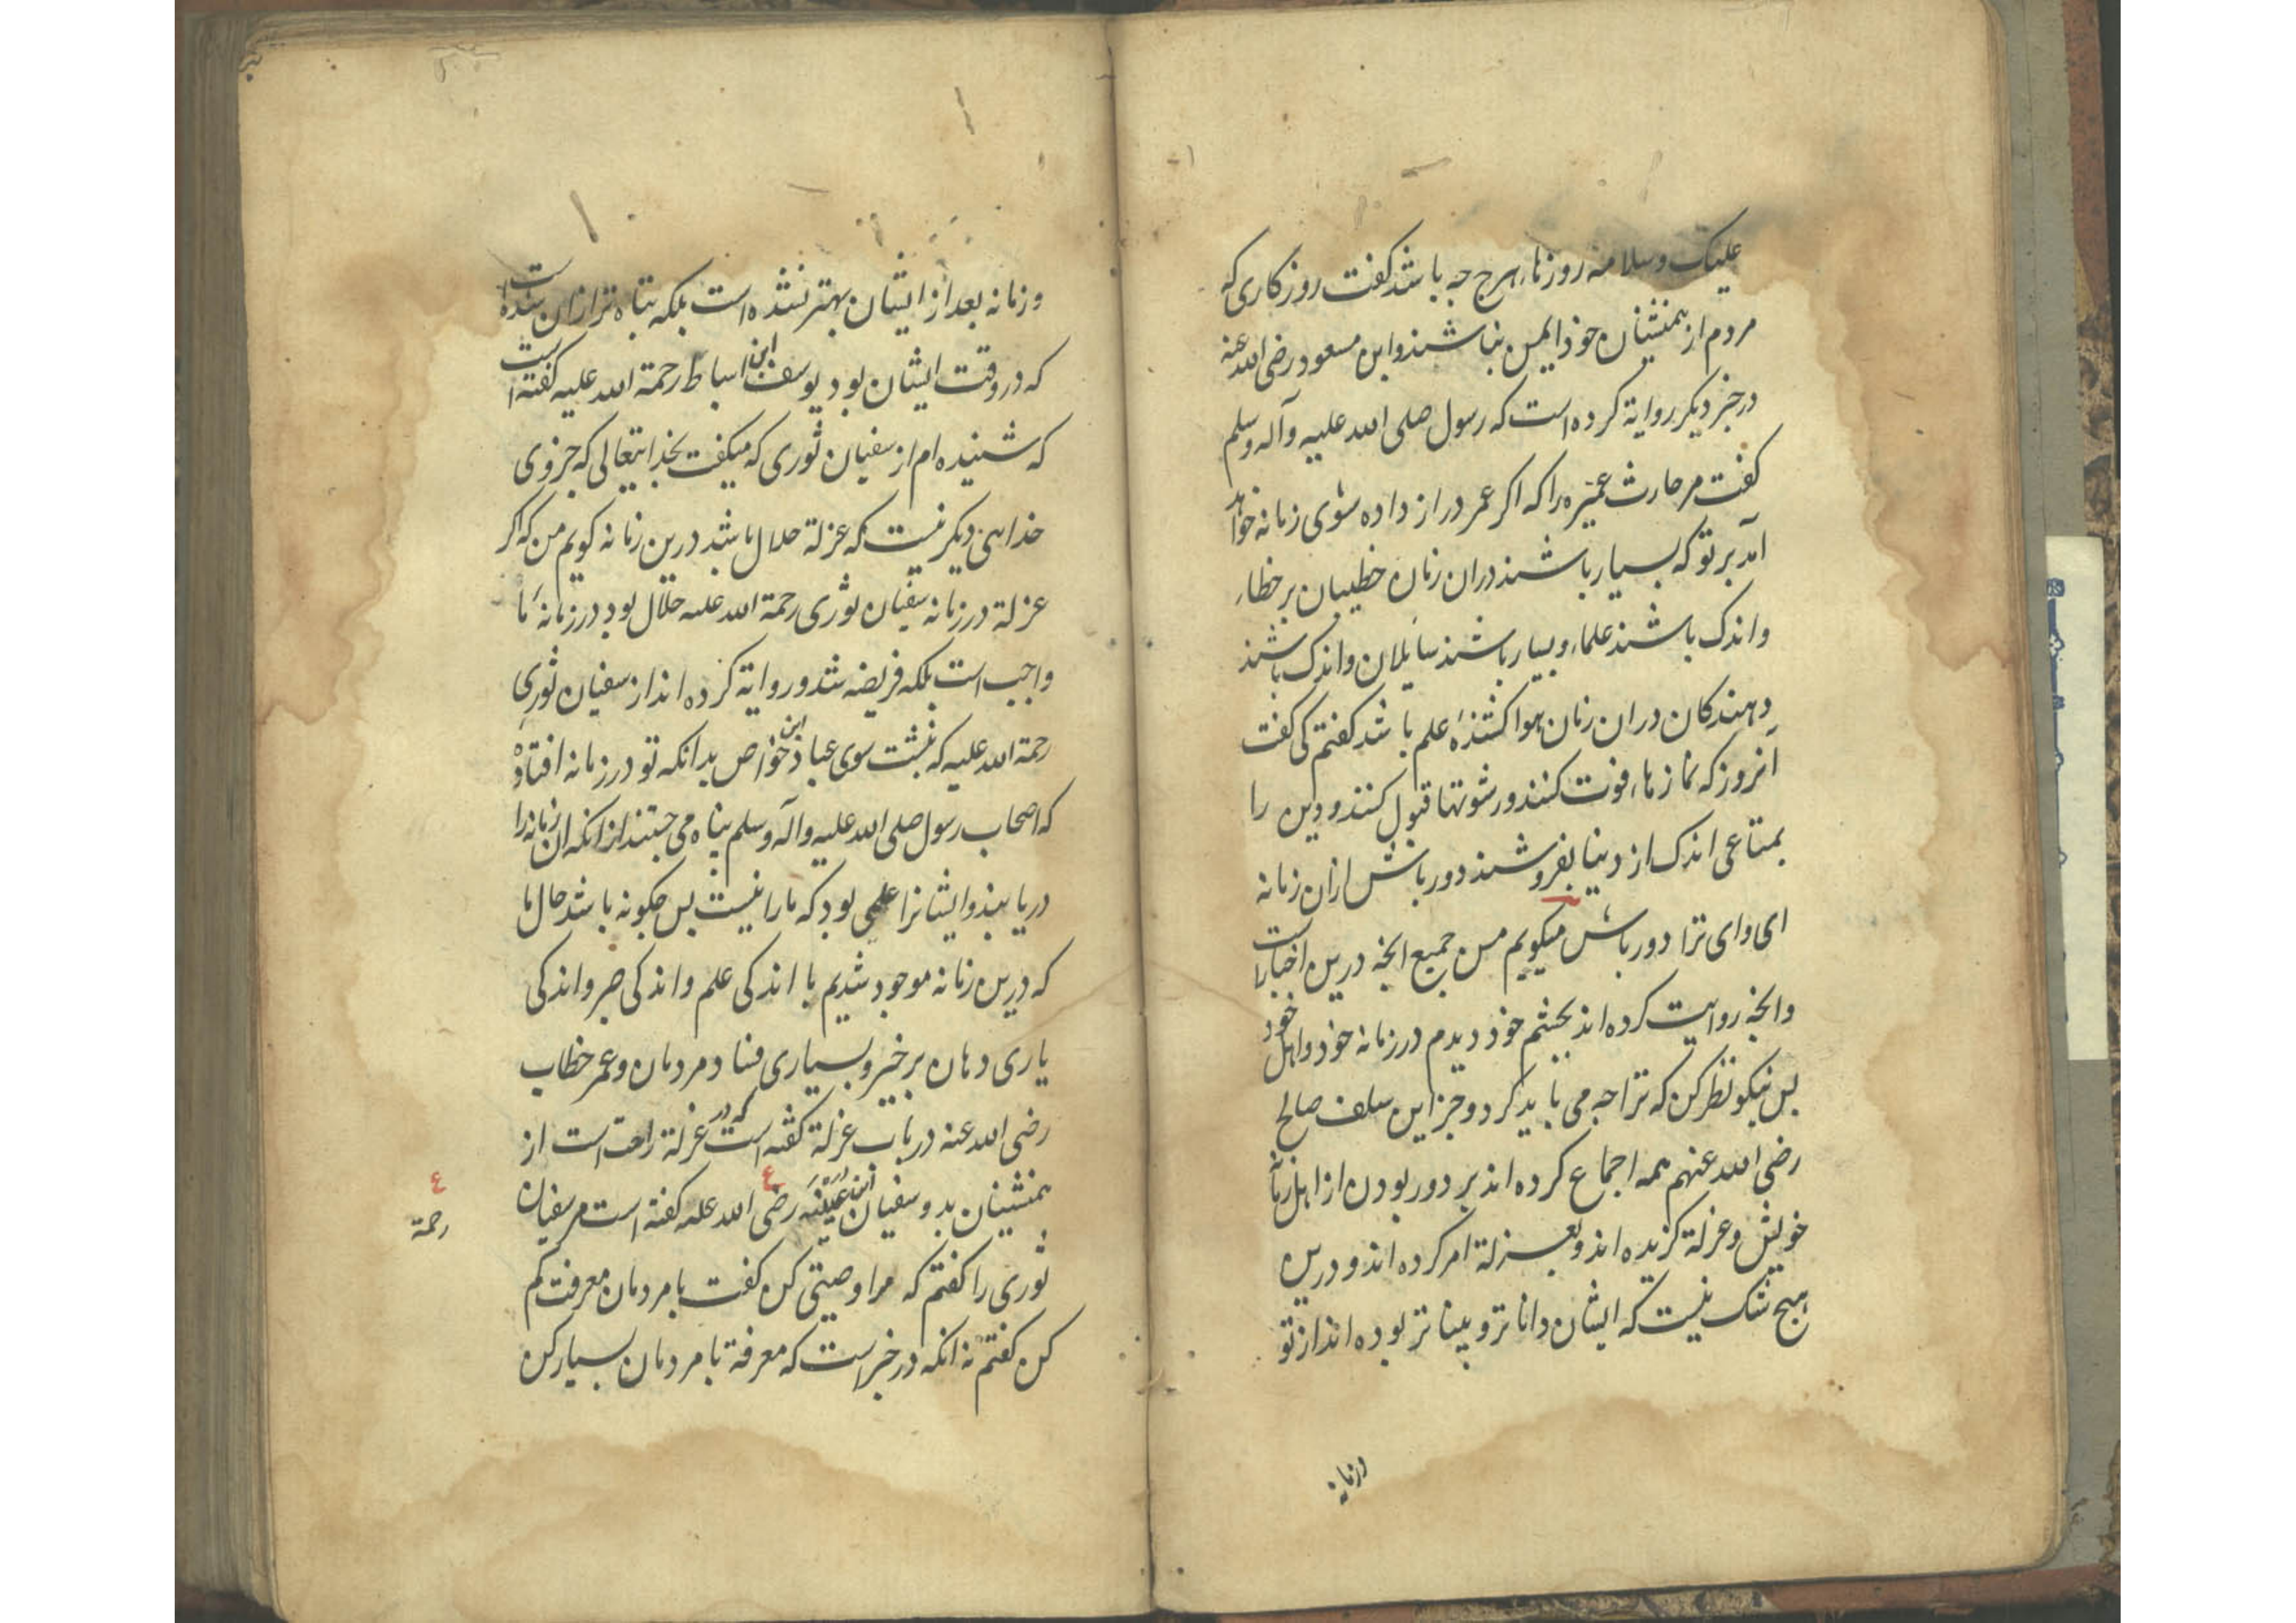 علیک و سلامه روزها، هرج چه باشد کفت روزکاری که
مردم از همنشینان خوذ ایمن نباشند و ابن مسعود رضی الله عنه
در خبر دیکر روایة کرده است که رسول صلی الله علیه و آله وسلم
کفت مر حارث عمیره را که اکر عمر دراز داده شوی زمانه خواهد
آمد بر تو که بسیار باشند دران زمان خطیبان بر خطاء
و اندک باشند علماء و بسیار باشند سایلان و اندک باشند
دهندکان دران زمان هوا کشنذهٔ علم باشد کفتم کی کفت
آنروز که نمازها، فوت کنند و رشوتها قبول کنند و دین را
بمتاعی اندک از دنیا بفروشند دور باش ازان زمانه
ای وای ترا دور باش میکویم من جمیع انچه درین اخبار است
وانچه روایت کرده اند بچشم خوذ دیدم در زمانه خوذ و اهل خود
بس نیکو نظر کن که ترا چه می باید کرد و جز این سلف صالح
رضی الله عنهم همه اجماع کرده اند بر دور بودن از اهل زمانه
خویش و عزلة کزیده اند و بعزلة امر کرده اند و درین
هیچ شک نیست که ایشان داناتر و بیناتر بوده اند از تو
وزمانه
و زمانه بعد از ایشان بهتر نشده است بلکه تباه تر ازان شده است
که در وقت ایشان بود یوسف ابن اسباط رحمة الله علیه کفته است
که شنیده ام از سفیان ثوری که میکفت بخدایتعالی که جز وی
خداهی دیکر نیست که عزلة حلال باشد درین زمانه کویم من که اکر
عزلة در زمانه سفیان ثوری رحمة الله علیه حلال بود در زمانهٔ ما
واجب است بلکه فریضه شد و روایة کرده اند از سفیان ثوری
رحمة الله علیه که نبشت سوی عباد ابن خواص بدانکه تو در زمانه افتادهٔ
که اصحاب رسول صلی الله علیه و آله وسلم پناه می جستند ازانکه ان زمانه را
دریابند و ایشانرا علمی بود که ما را نیست بس چکونه باشد حال ما
که درین زمانه موجود شدیم با اندکی علم و اندکی صبر و اندکی
یاری دهان بر خیر و بسیاری فساد مردمان و عمر خطاب
رضی الله عنه در باب عزلة کفته است که در عزلة راحت است از
همنشینان بد و سفیان ابن عیینه رضی الله علیه کفته است مر سفیان
رحمة
ثوری را کفتم که مرا وصیتی کن کفت با مردمان معرفت کم
کن کفتم نه انکه در خبر است که معرفة با مردمان بسیار کن